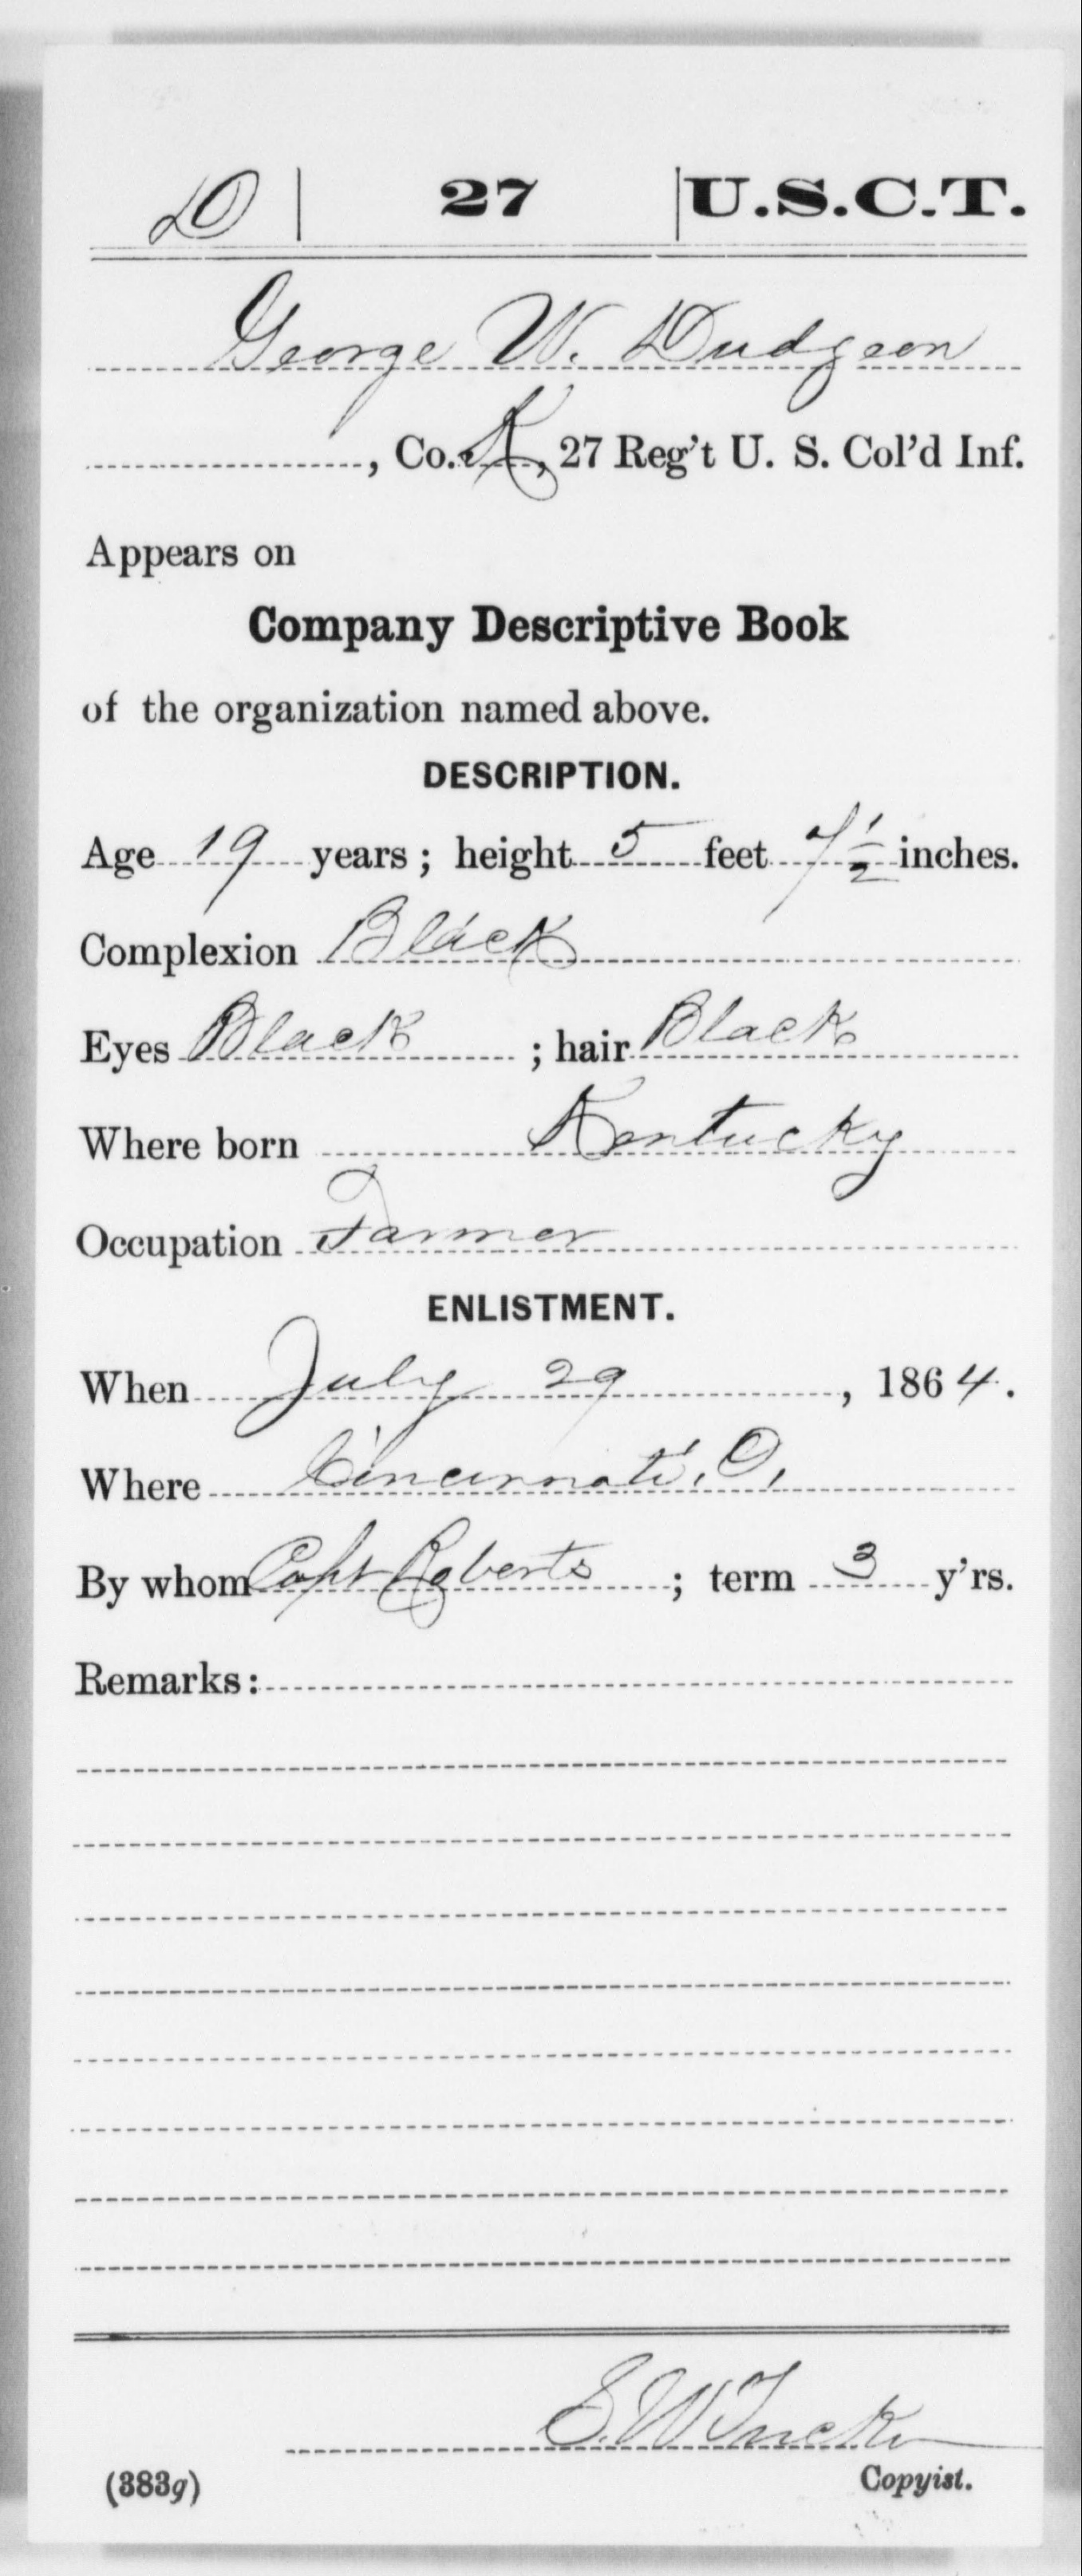 D | 27 | U.S.C.T.
George W. Dudgeon
, Co. K, 27 Reg't U. S. Col'd Inf.
Appears on
Company Descriptive Book
of the organization named above.
DESCRIPTION.
Age 19 years; height 5 feet 7½ inches.
Complexion Black
Eyes Black ; hair Black
Where born Kentucky
Occupation Farmer
ENLISTMENT.
When July 29, 1864.
Where Cincinnati, O,
By whom Capt Roberts ; term 3 y'rs.
Remarks:
S. W. Tucker
(383g) Copyist.